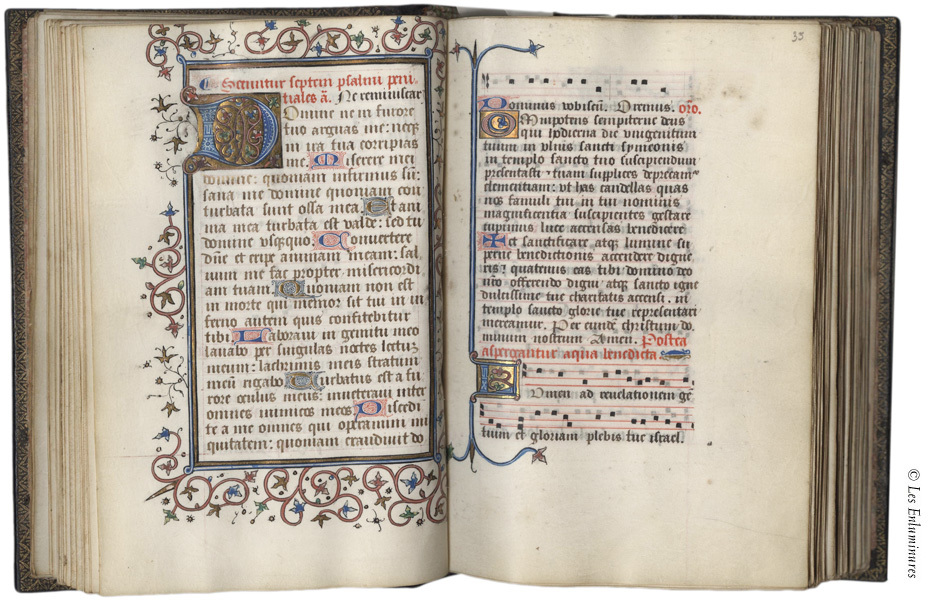 Secuntur septem psalmi peni-
tiales a. Ne reminiscar
Domine ne in furore
tuo arguas me: neqz
in ira tua corripias
me. Miserere mei
domine: quoniam infirmus sū:
sana me domine quoniam con
turbata sunt ossa mea. Et ani
ma mea turbata est valde: sed tu
domine vsqzquo. Conuertere
dn̄e et eripe animam meam: sal
uum me fac propter misericordi
am tuam. Quoniam non est
in morte qui memor sit tui in in
ferno autem quis confitebitur
tibi. Laboraui in gemitu meo
lauabo per singulas noctes lectuz
meum: lachrimis meis stratum
meū rigabo. Turbatus est a fu
rore oculus meus: inueteraui inter
omnes inimicos meos. Discedi
te a me omnes qui operamini ini
quitatem: quoniam exaudiuit do
35
Dominus vobiscū. Oremus. oro.
Omnipotens sempiterne deus
qui hodierna die vnigenitum
tuum in vlnis sancti symeonis
in templo sancto tuo suscipiendum
presentasti: tuam supplices deprecam̄
clementiam: vt has candellas quas
nos famuli tui in tui nominis
magnificentia suscipientes gestare
cupimus luce accensas benedicere
et sanctificare atqz lumine su
perne benedictionis accendere digne
ris: quatenus eas tibi domino deo
nr̄o offerendo digni atqz sancto igne
dulcissime tue charitatis accensi. in
templo sancto glorie tue representari
mereamur. Per eundē christum do
minum nostrum Amen. Postea
aspergantur aqua benedicta
Lumen ad reuelationem gē
tium et gloriam plebis tue israel.
© Les Enluminures